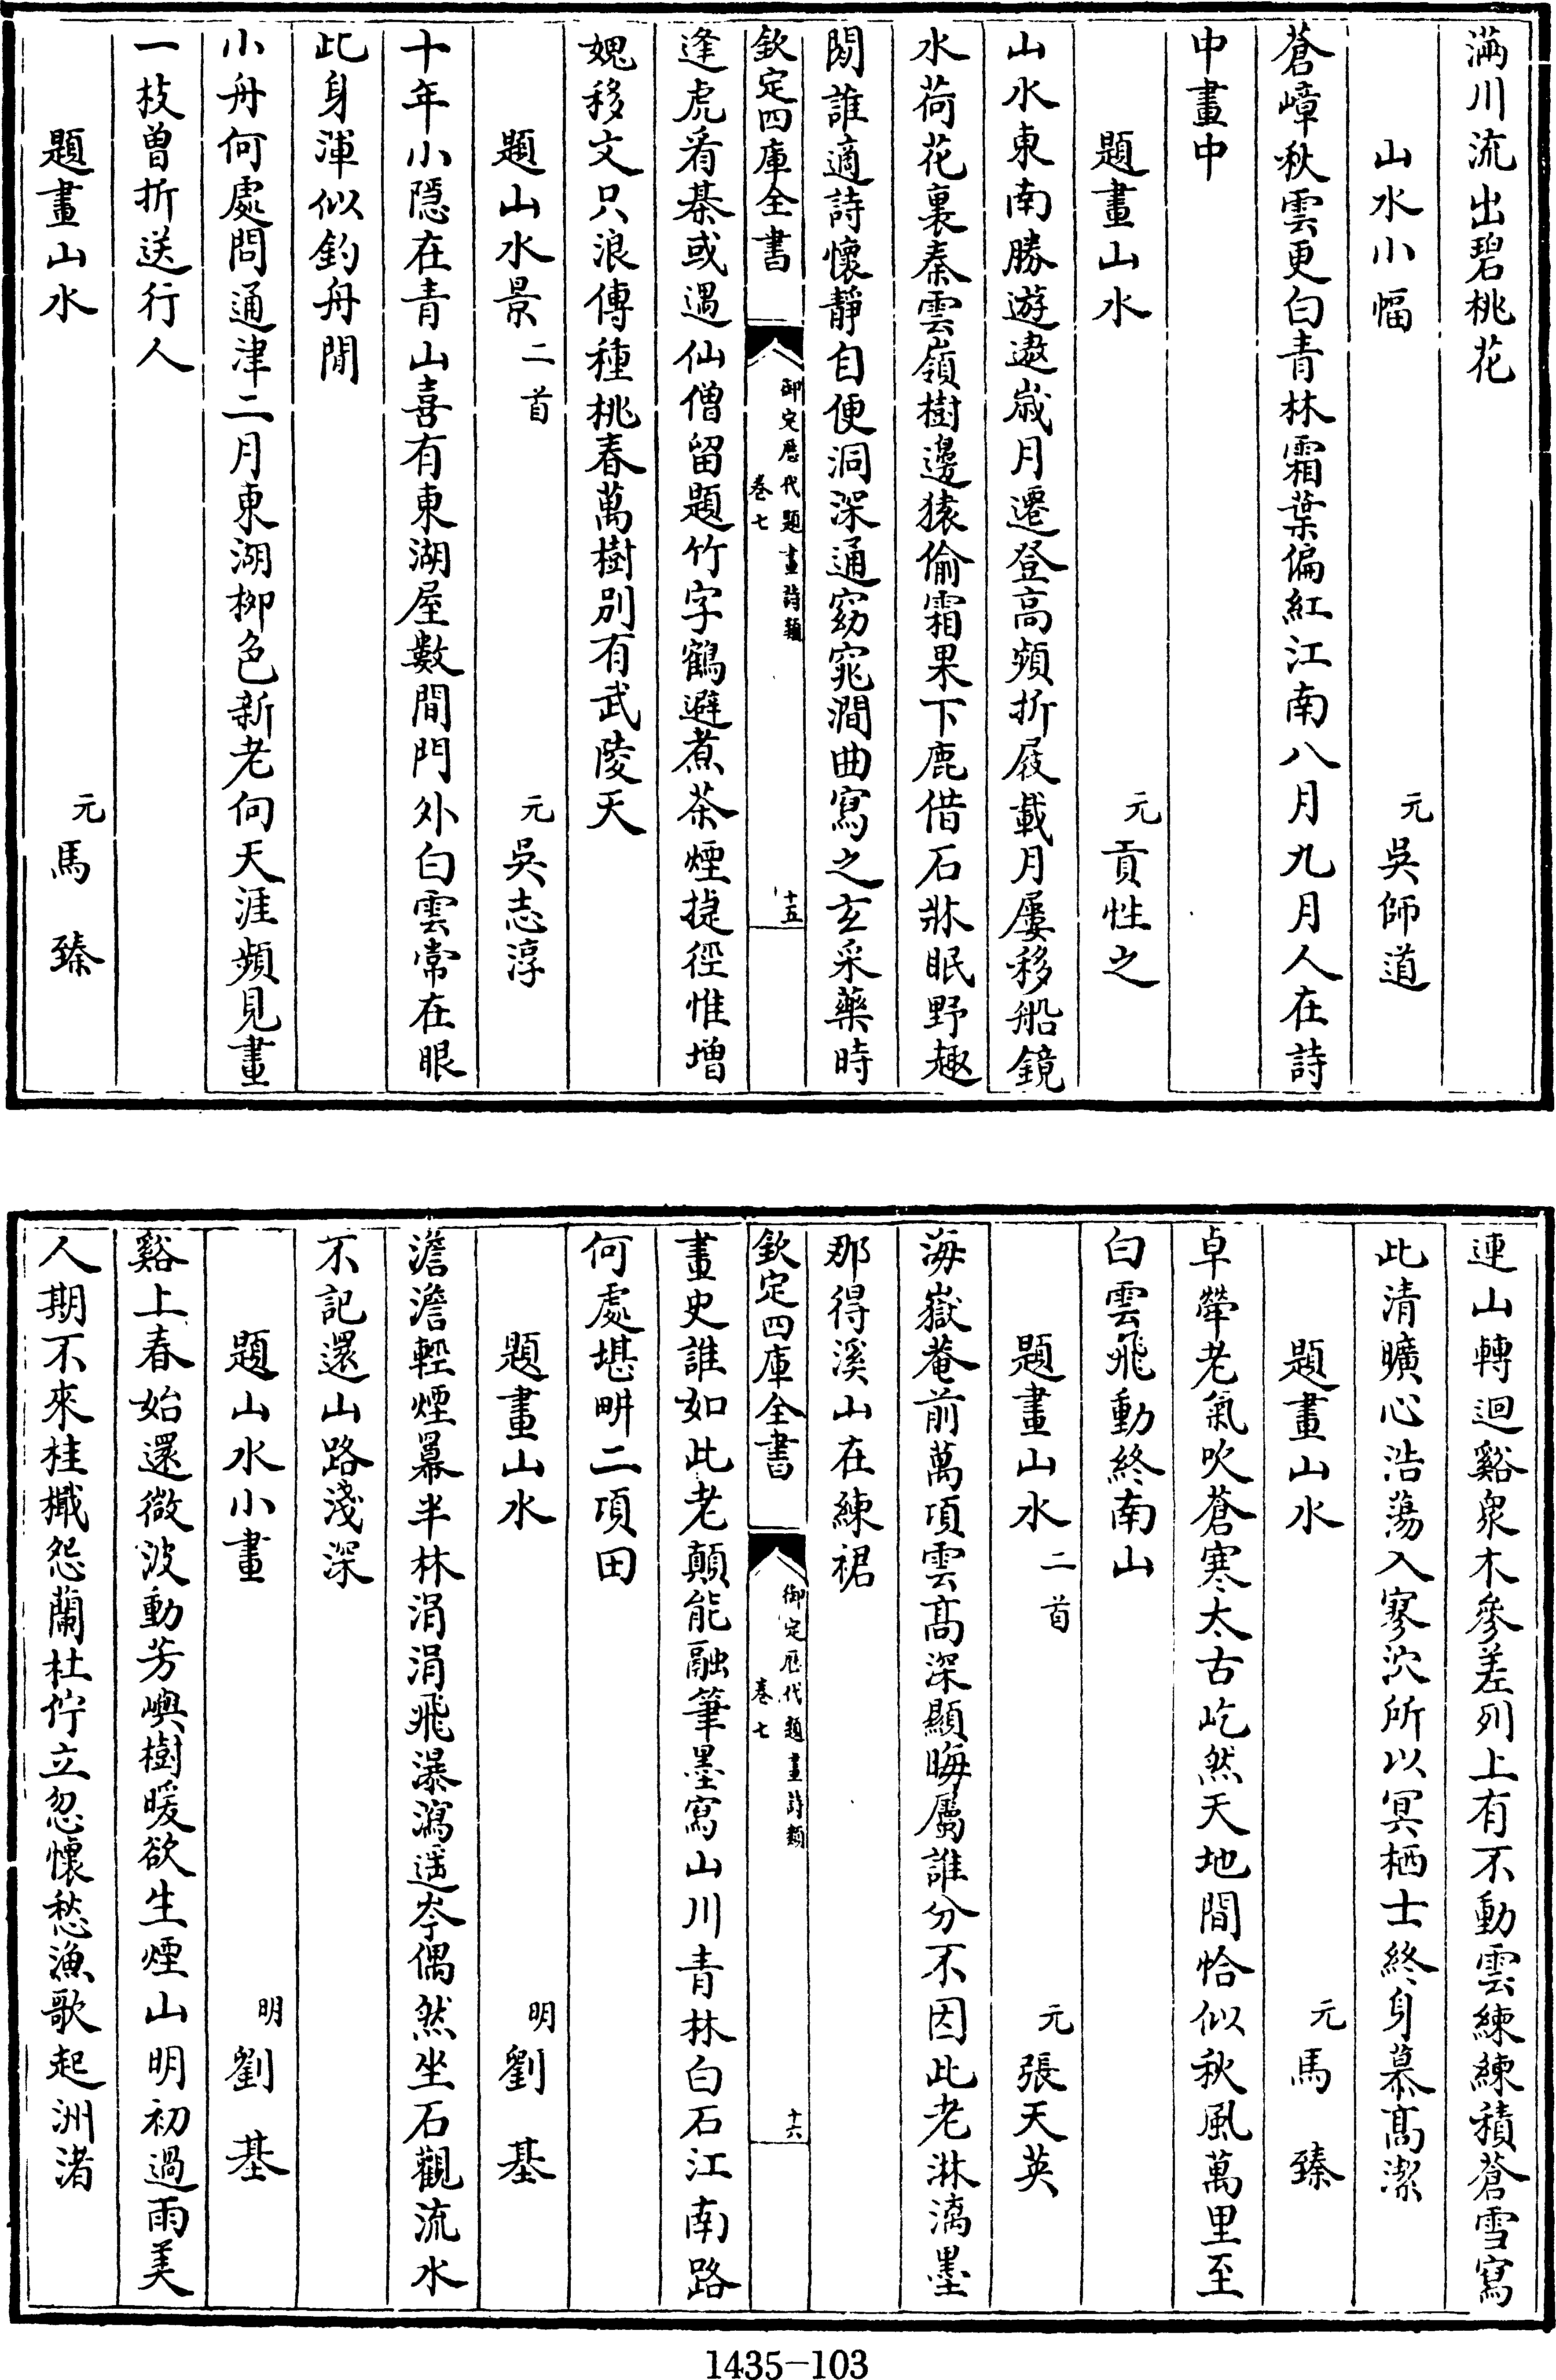 滿川流出碧桃花
山水小幅 元 吳師道
蒼嶂秋雲更白青林霜葉偏紅江南八月九月人在詩
中畫中
題畫山水 元 貢性之
山水東南勝遊遨歲月遷登高頻折屐載月屢移船鏡
水荷花裏秦雲嶺樹邊猿偷霜果下鹿借石牀眠野趣
閱誰適詩懷靜自便洞深通窈窕澗曲寫之玄采藥時
欽定四庫全書 御定歷代題畫詩類 卷七 十五
逢虎看棊或遇仙僧留題竹字鶴避煮茶煙捷徑惟增
媿移文只浪傳種桃春萬樹別有武陵天
題山水景 二首 元 吳志淳
十年小隱在青山喜有東湖屋數間門外白雲常在眼
此身渾似釣舟閒
小舟何處問通津二月東湖柳色新老向天涯頻見畫
一枝曾折送行人
題畫山水 元 馬臻
連山轉迴谿泉木參差列上有不動雲練練積蒼雪寫
此清曠心浩蕩入寥泬所以冥栖士終身慕高潔
題畫山水 元 馬臻
卓犖老氣吹蒼寒太古屹然天地間恰似秋風萬里至
白雲飛動終南山
題畫山水 二首 元 張天英
海嶽菴前萬頃雲高深顯晦屬誰分不因此老淋漓墨
那得溪山在練裙
欽定四庫全書 御定歷代題畫詩類 卷七 十六
畫史誰如此老顛能融筆墨寫山川青林白石江南路
何處堪畊二頃田
題畫山水 明 劉基
澹澹輕煙冪半林涓涓飛瀑瀉遥岑偶然坐石觀流水
不記還山路淺深
題山水小畫 明 劉基
谿上春始還微波動芳嶼樹暖欲生煙山明初過雨美
人期不來桂檝怨蘭杜佇立忽懷愁漁歌起洲渚
1435-103